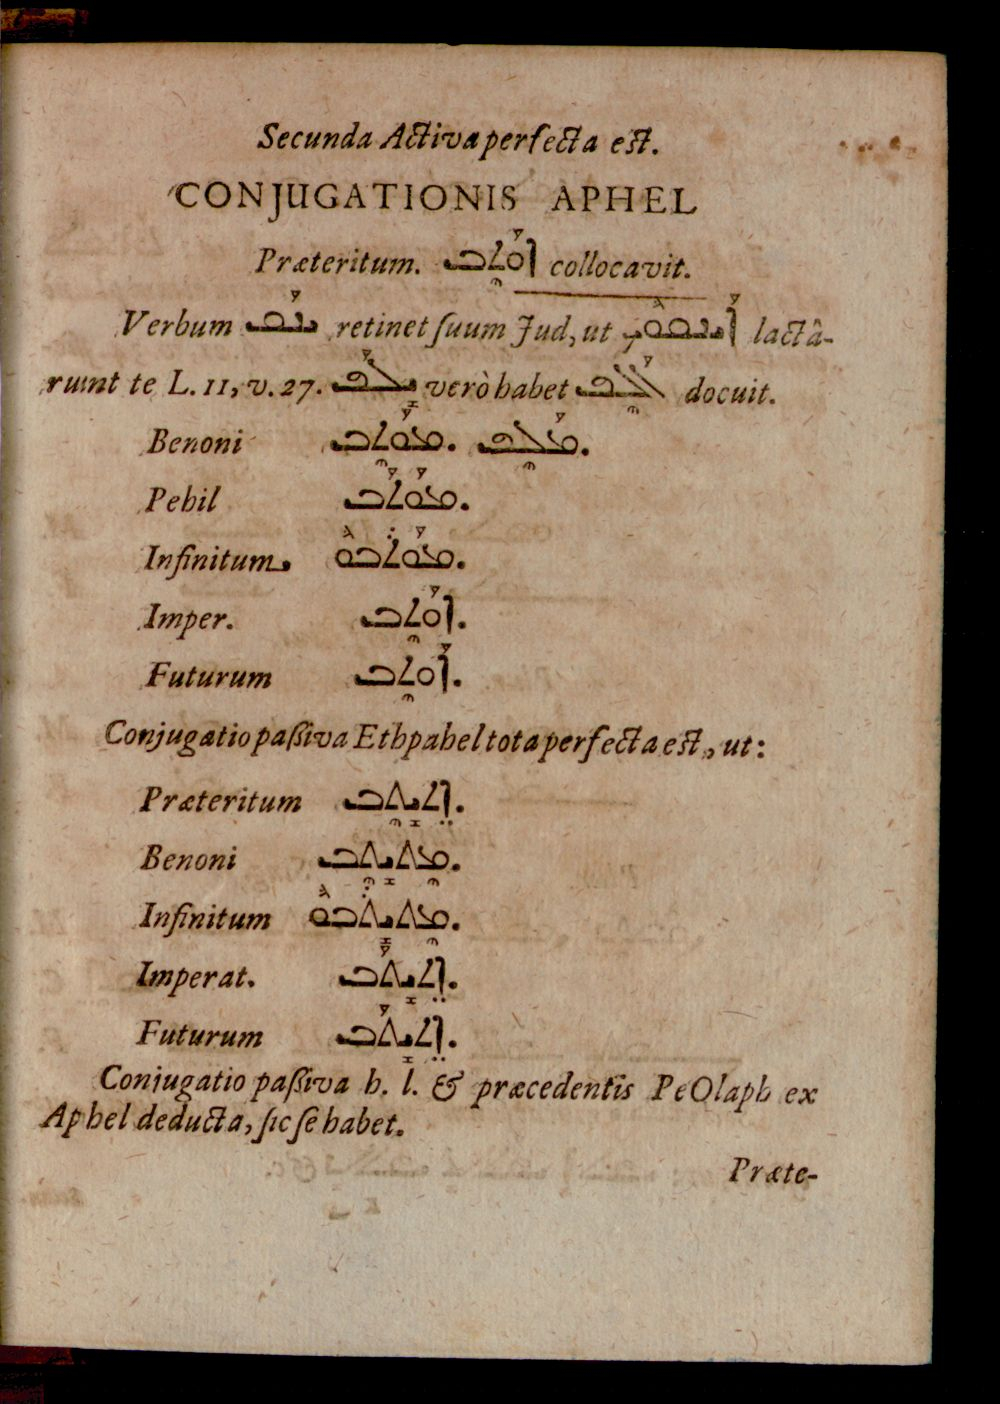 Secunda Activa perfecta est.
CONJUGATIONIS APHEL
Præteritum. ܐܰܘܬܶܒ collocavit.
Verbum ܝܢܰܩ retinet suum Jud, ut ܐܰܝܢܩܽܘܟ lactâ-
runt te L. 11, v. 27. ܝܺܠܰܦ verò habet ܐܰܠܶܦ docuit.
Benoni ܡܰܘܬܶܒ. ܡܰܠܶܦ.
Pehil ܡܰܘܬܰܒ.
Infinitum. ܡܰܘܬܳܒܽܘ.
Imper. ܐܰܘܬܶܒ.
Futurum ܐܰܘܬܶܒ.
Conjugatio passiva Ethpahel tota perfecta est, ut:
Præteritum ܐܶܬܺܝܬܶܒ.
Benoni ܡܶܬܺܝܬܶܒ.
Infinitum ܡܶܬܺܝܬܳܒܽܘ.
Imperat. ܐܶܬܺܝܬܰܒ.
Futurum ܐܶܬܺܝܬܰܒ.
Conjugatio passiva h. l. & præcedentis Pe Olaph ex
Aphel deducta, sic se habet.
Præte-